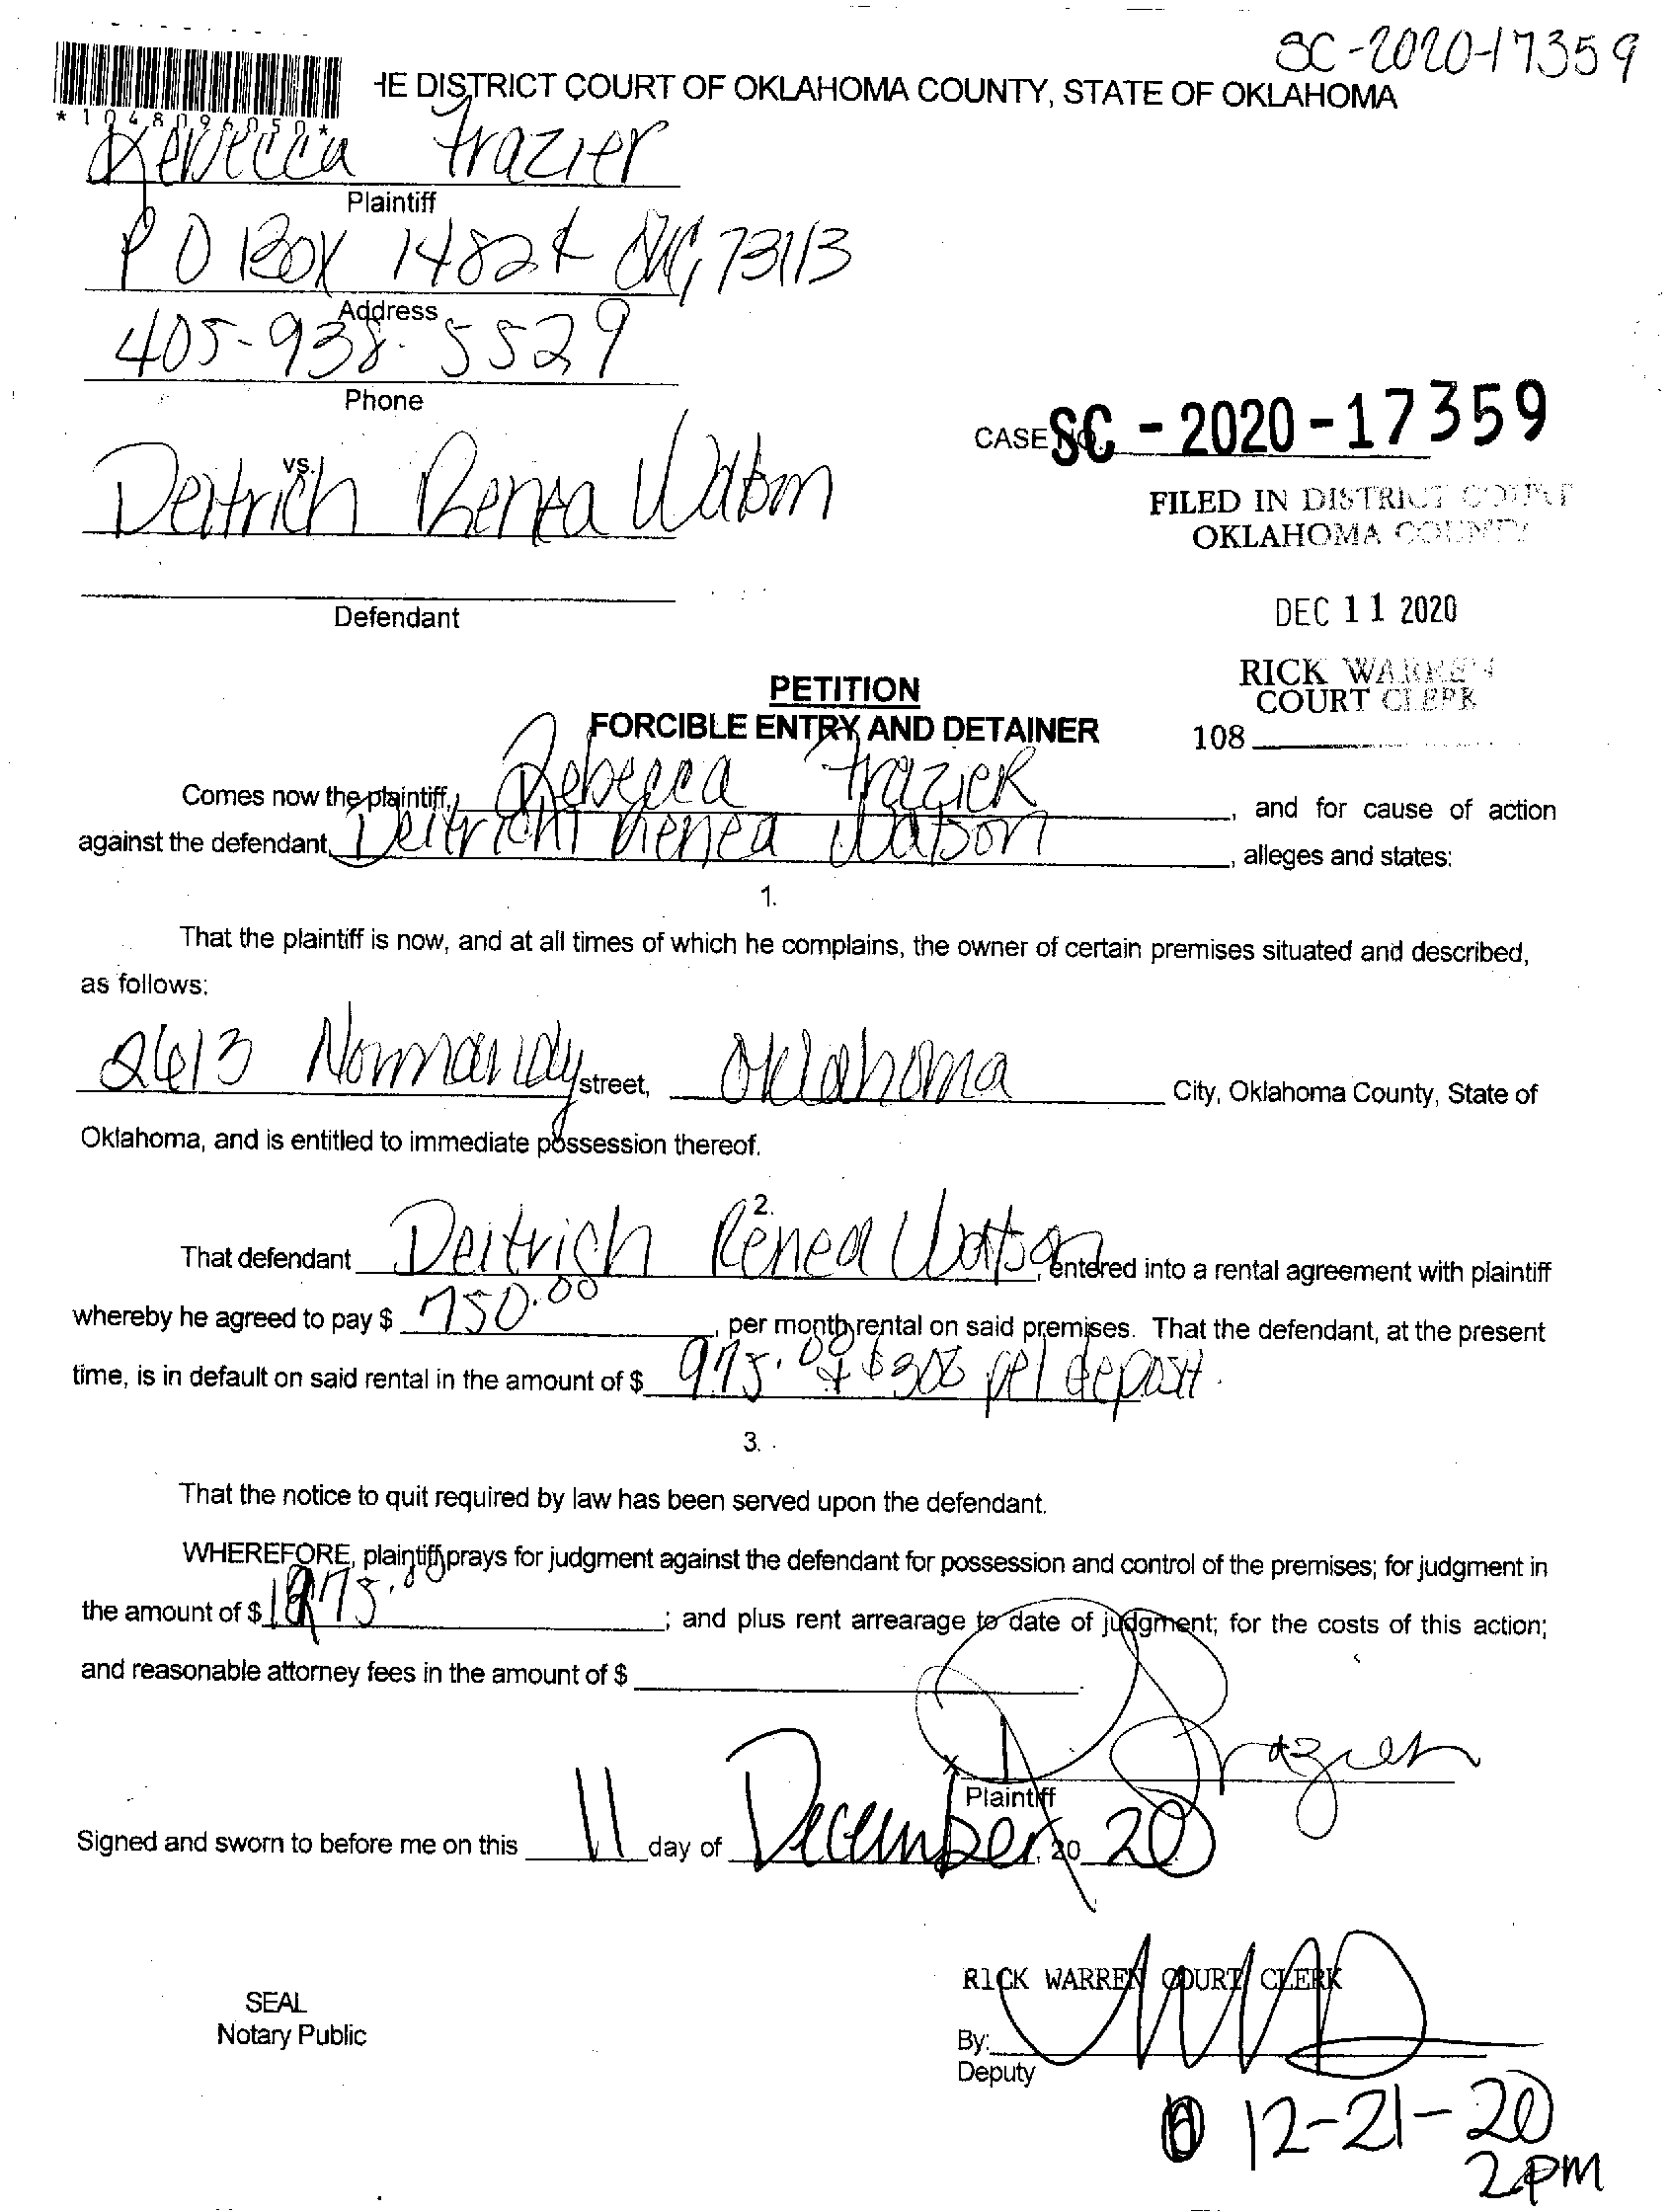 SC-2020-17359
HE DISTRICT COURT OF OKLAHOMA COUNTY, STATE OF OKLAHOMA
*1048096050*
Rebecca Frazier
Plaintiff
P O Box 14824 OKC, 73113
Address
405-938-5529
Phone
CASE NO. SC-2020-17359
vs.
Deitrich Renea Watson
FILED IN DISTRICT COURT
OKLAHOMA COUNTY
Defendant
DEC 11 2020
RICK WARREN
COURT CLERK
108
PETITION
FORCIBLE ENTRY AND DETAINER
Comes now the plaintiff, Rebecca Frazier, and for cause of action
against the defendant, Deitrich Renea Watson, alleges and states:
1.
That the plaintiff is now, and at all times of which he complains, the owner of certain premises situated and described,
as follows:
2613 Normandy street, Oklahoma City, Oklahoma County, State of
Oklahoma, and is entitled to immediate possession thereof.
2.
That defendant Deitrich Renea Watson, entered into a rental agreement with plaintiff
whereby he agreed to pay $ 750.00, per month rental on said premises. That the defendant, at the present
time, is in default on said rental in the amount of $ 975.00 + $300 pet deposit.
3.
That the notice to quit required by law has been served upon the defendant.
WHEREFORE, plaintiff prays for judgment against the defendant for possession and control of the premises; for judgment in
the amount of $ ; and plus rent arrearage to date of judgment; for the costs of this action;
and reasonable attorney fees in the amount of $
Frazier
Plaintiff
Signed and sworn to before me on this 11 day of December, 20 20
RICK WARREN COURT CLERK
SEAL
Notary Public
By:
Deputy
12-21-20
2pm